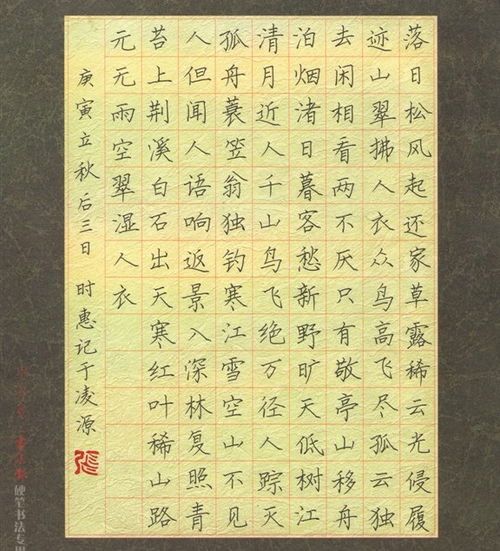 落日松风起还家草露稀云光侵履
迹山翠拂人衣众鸟高飞尽孤云独
去闲相看两不厌只有敬亭山移舟
泊烟渚日暮客愁新野旷天低树江
清月近人千山鸟飞绝万径人踪灭
孤舟蓑笠翁独钓寒江雪空山不见
人但闻人语响返景入深林复照青
苔上荆溪白石出天寒红叶稀山路
元无雨空翠湿人衣
庚寅立秋后三日 时惠记于凌源
张
硬笔书法专用